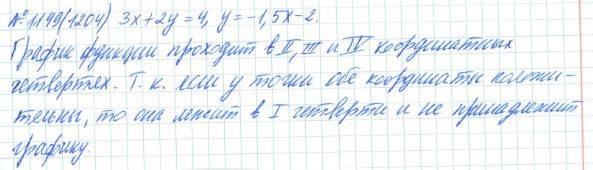 № 1199(1204) 3x+2y=4, y=-1,5x-2.
График функции проходит в II, III и IV координатных
четвертях. Т. к. если у точки обе координаты положи-
тельны, то она лежит в I четверти и не принадлежит
графику.